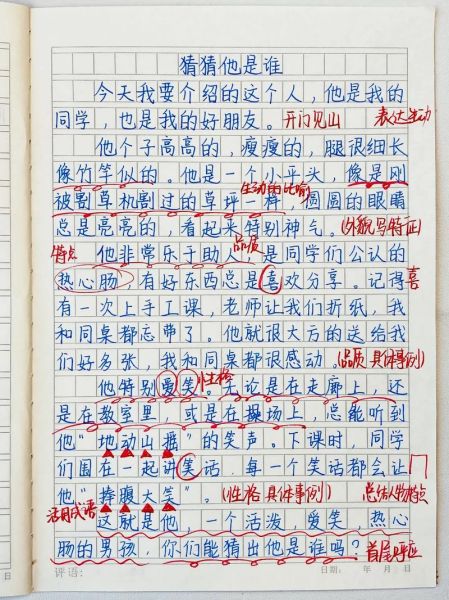 猜猜他是谁
今天我要介绍的这个人，他是我的
同学，也是我的好朋友。开门见山 表达生动
他个子高高的，瘦瘦的，腿很细长
像竹竿似的。他是一个小平头，像是刚
生动的比喻
被割草机割过的草坪一样，圆圆的眼睛
总是亮亮的，看起来特别神气。(外貌写特征)
特点 他非常乐于助人，是同学们公认的
品质
“热心肠”，有好东西总是喜欢分享。记得 喜
有一次上手工课，老师让我们折纸，我
和同桌都忘带了。他就很大方的送给我
们好多张，我和同桌都很感动。(品质 具体事例)
他特别爱笑。无论是在走廊上，还
性格
是在教室里，或是在操场上，总能听到
他“地动山摇”的笑声。下课时，同学
们围在一起讲笑话，每一个笑话都会让
他“捧腹大笑”。(性格 具体事例) 总结人物特点
活用成语 这就是他，一个活泼，爱笑，热心
肠的男孩，你们能猜出他是谁吗？首尾呼应
评语： 日期： 年 月 日
日